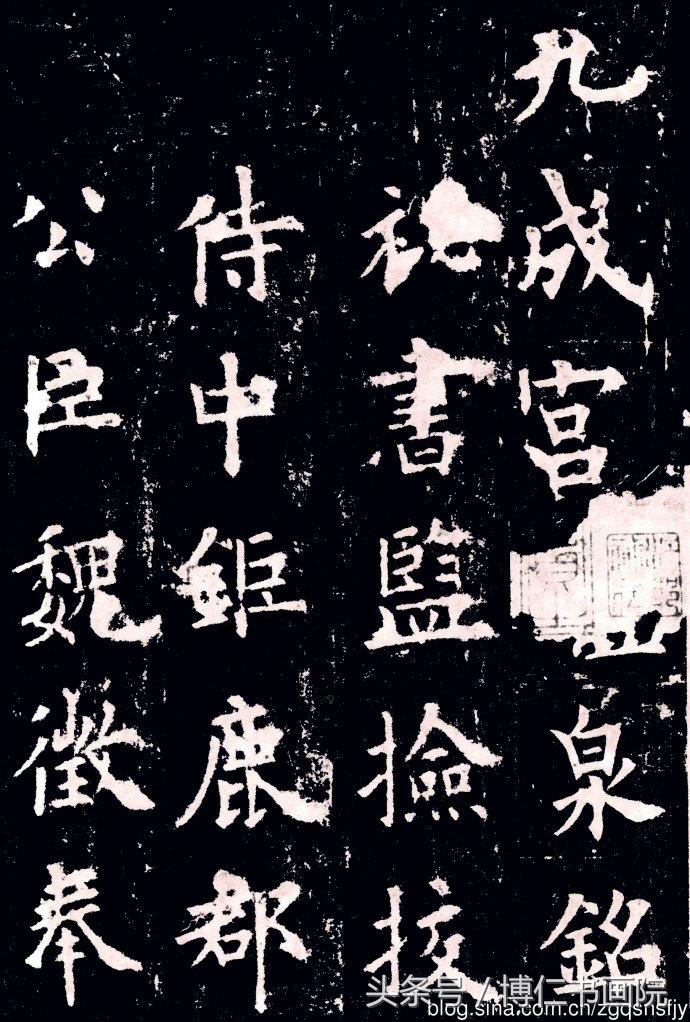 九成宮泉銘
秘書監撿挍
侍中鉅鹿郡
公臣魏徵奉
头条号 / 博仁书画院
blog.sina.com.cn/zgqshsfjy